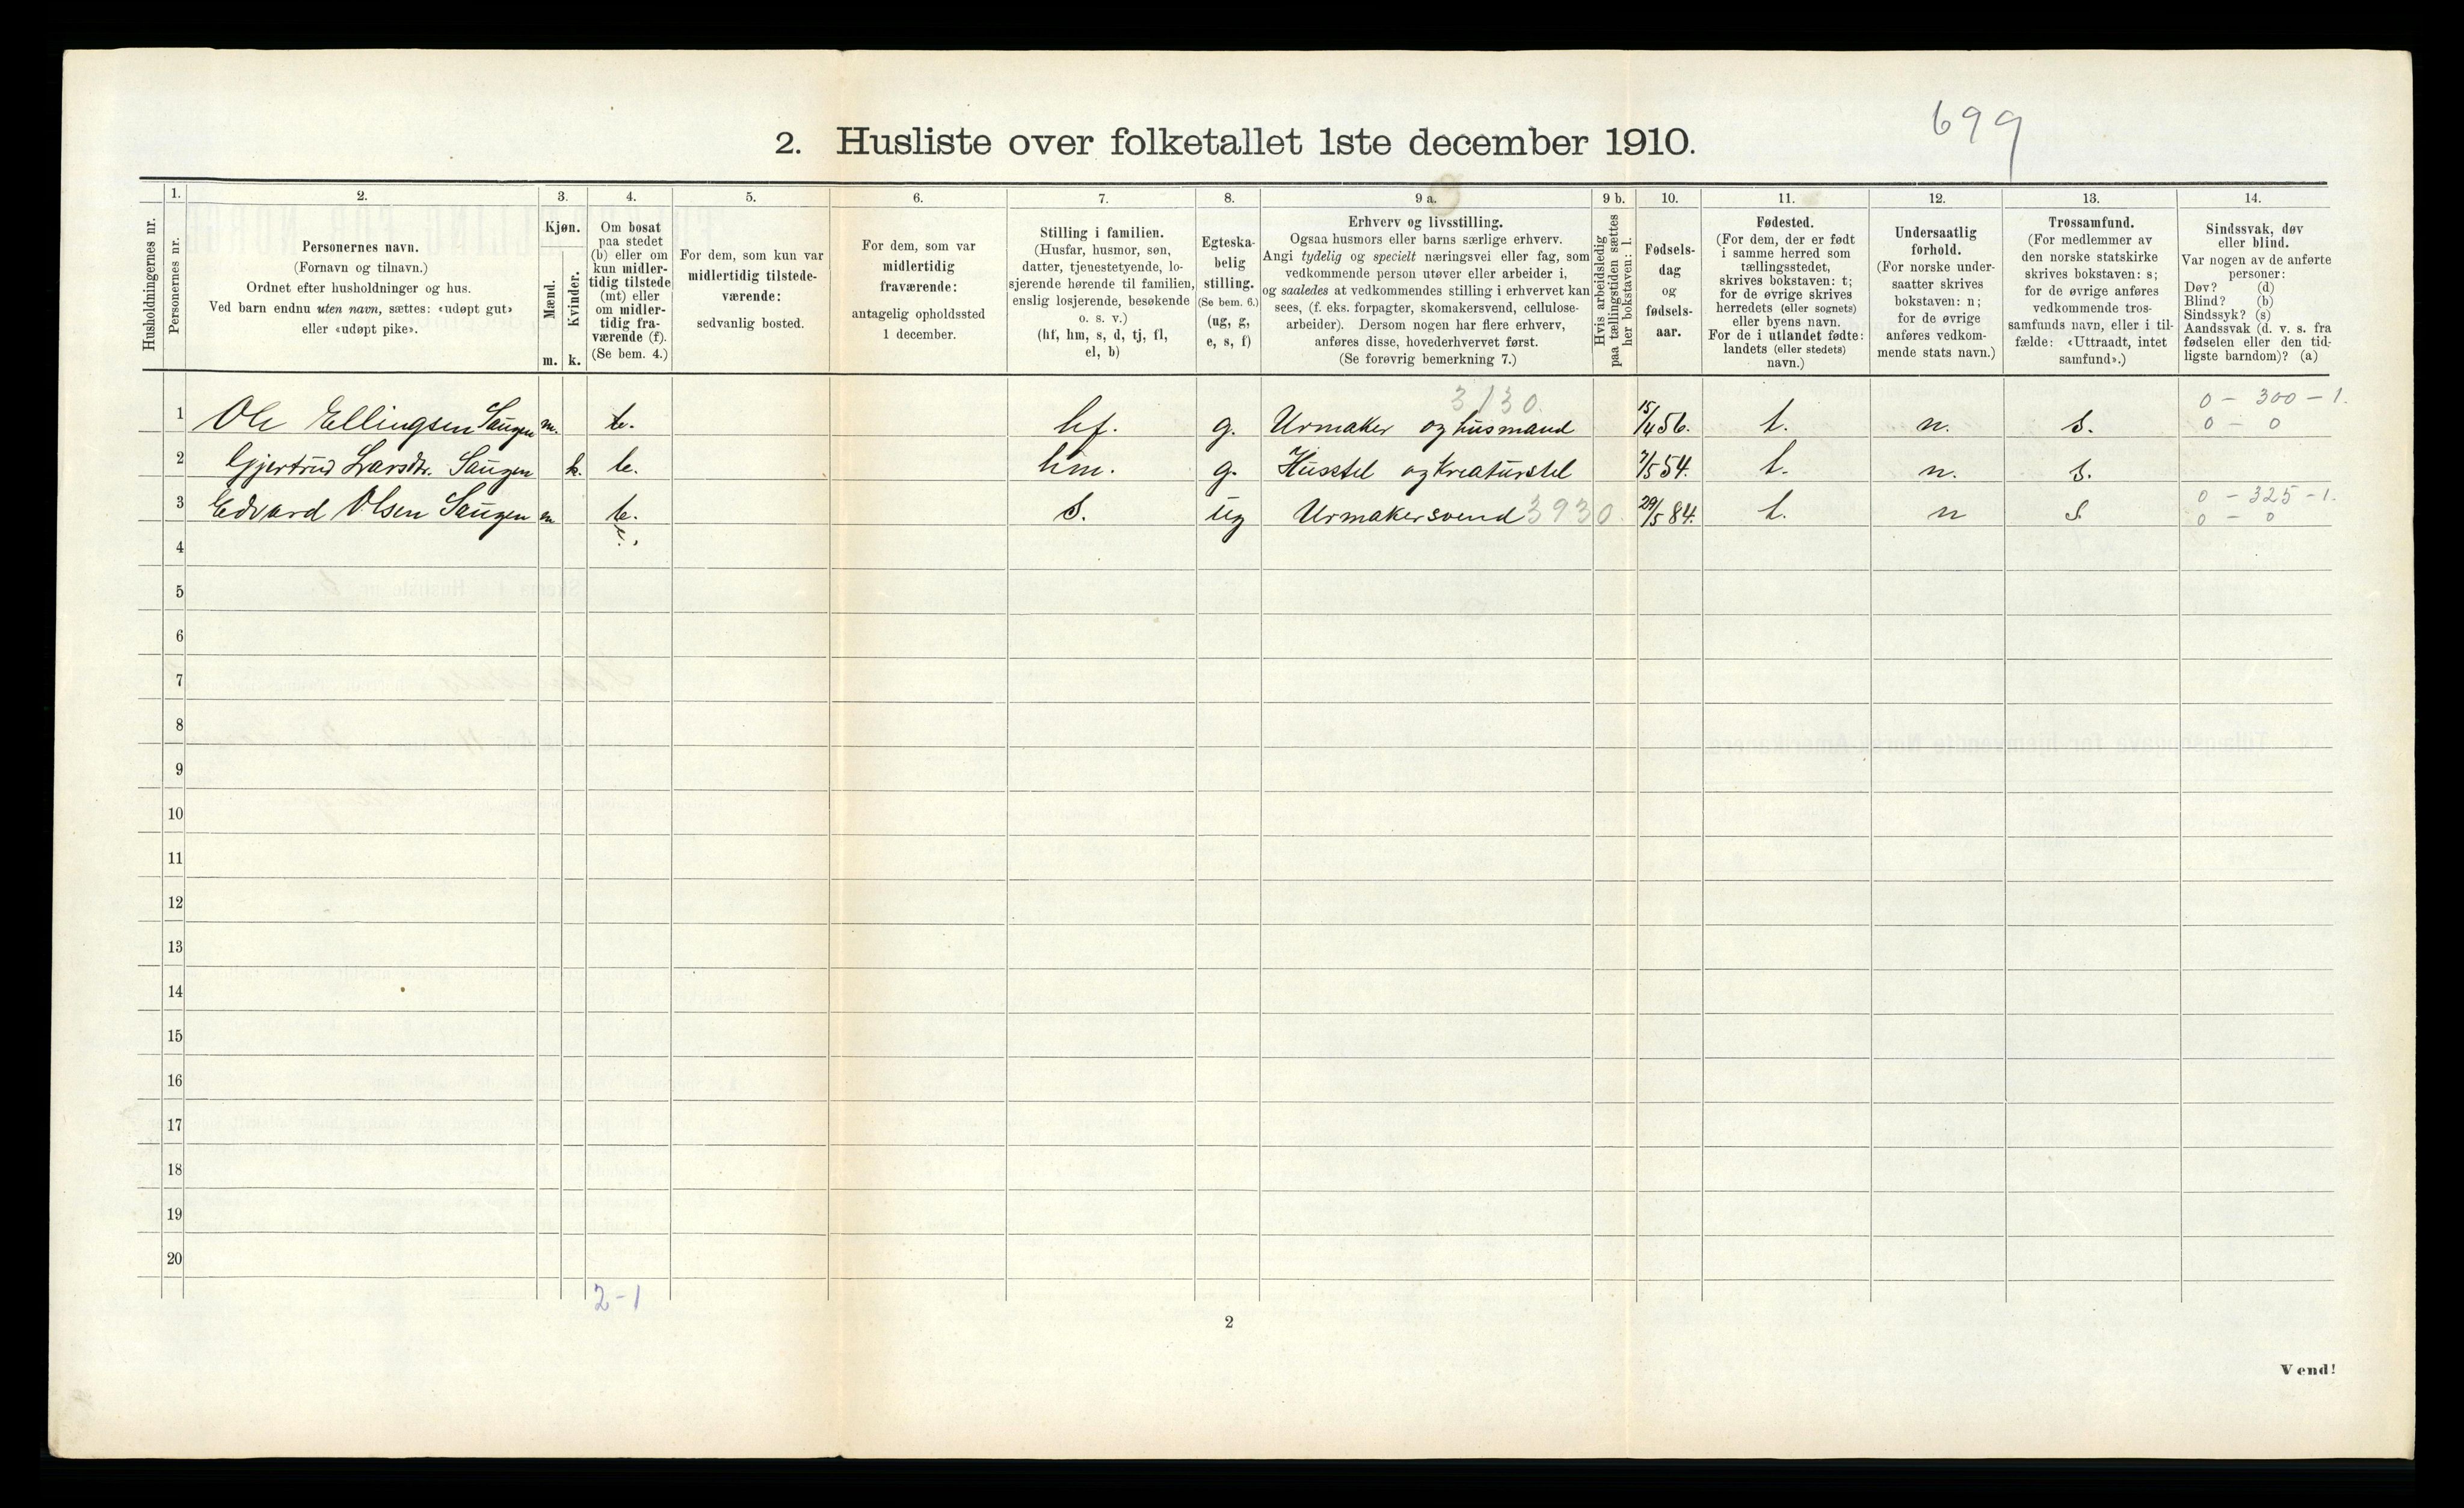 699
2. Husliste over folketallet 1ste december 1910.
Husholdningernes nr.
1.
Personernes nr.
2.
Personernes navn.
(Fornavn og tilnavn.)
Ordnet efter husholdninger og hus.
Ved barn endnu uten navn, sættes: «udøpt gut»
eller «udøpt pike».
3.
Kjøn.
Mænd.
m.
Kvinder.
k.
4.
Om bosat
paa stedet
(b) eller om
kun midler-
tidig tilstede
(mt) eller
om midler-
tidig fra-
værende (f).
(Se bem. 4.)
5.
For dem, som kun var
midlertidig tilstede-
værende:
sedvanlig bosted.
6.
For dem, som var
midlertidig
fraværende:
antagelig opholdssted
1 december.
7.
Stilling i familien.
(Husfar, husmor, søn,
datter, tjenestetyende, lo-
sjerende hørende til familien,
enslig losjerende, besøkende
o. s. v.)
(hf, hm, s, d, tj, fl,
el, b)
8.
Egteska-
belig
stilling.
(Se bem. 6.)
(ug, g,
e, s, f)
9 a.
Erhverv og livsstilling.
Ogsaa husmors eller barns særlige erhverv.
Angi tydelig og specielt næringsvei eller fag, som
vedkommende person utøver eller arbeider i,
og saaledes at vedkommendes stilling i erhvervet kan
sees, (f. eks. forpagter, skomakersvend, cellulose-
arbeider). Dersom nogen har flere erhverv,
anføres disse, hovederhvervet først.
(Se forøvrig bemerkning 7.)
9 b.
Hvis arbeidsledig
paa tællingstiden sættes
her bokstaven: l.
10.
Fødsels-
dag
og
fødsels-
aar.
11.
Fødested.
(For dem, der er født
i samme herred som
tællingsstedet,
skrives bokstaven: t;
for de øvrige skrives
herredets (eller sognets)
eller byens navn.
For de i utlandet fødte:
landets (eller stedets)
navn.)
12.
Undersaatlig
forhold.
(For norske under-
saatter skrives
bokstaven: n;
for de øvrige
anføres vedkom-
mende stats navn.)
13.
Trossamfund.
(For medlemmer av
den norske statskirke
skrives bokstaven: s;
for de øvrige anføres
vedkommende tros-
samfunds navn, eller i til-
fælde: «Uttraadt, intet
samfund».)
14.
Sindssvak, døv
eller blind.
Var nogen av de anførte
personer:
Døv? (d)
Blind? (b)
Sindssyk? (s)
Aandssvak (d. v. s. fra
fødselen eller den tid-
ligste barndom)? (a)
3130. 0 - 300 - 1.
1 Ole Ellingsen Saugen m. b. hf. g. Urmaker og husmand 15/4 56. t. n. s. 0 - 0
2 Gjertrud Larsdr. Saugen k. b. hm. g. Husstel og Kreaturstel 7/5 54. t. n. s.
3 Edvard Olsen Saugen m b. s. ug Urmakersvend 3930. 29/5 84. t. n s 0 - 325 - 1.
0 - 0
4
5
6
7
8
9
10
11
12
13
14
15
16
17
18
19
20
2-1
2
Vend!